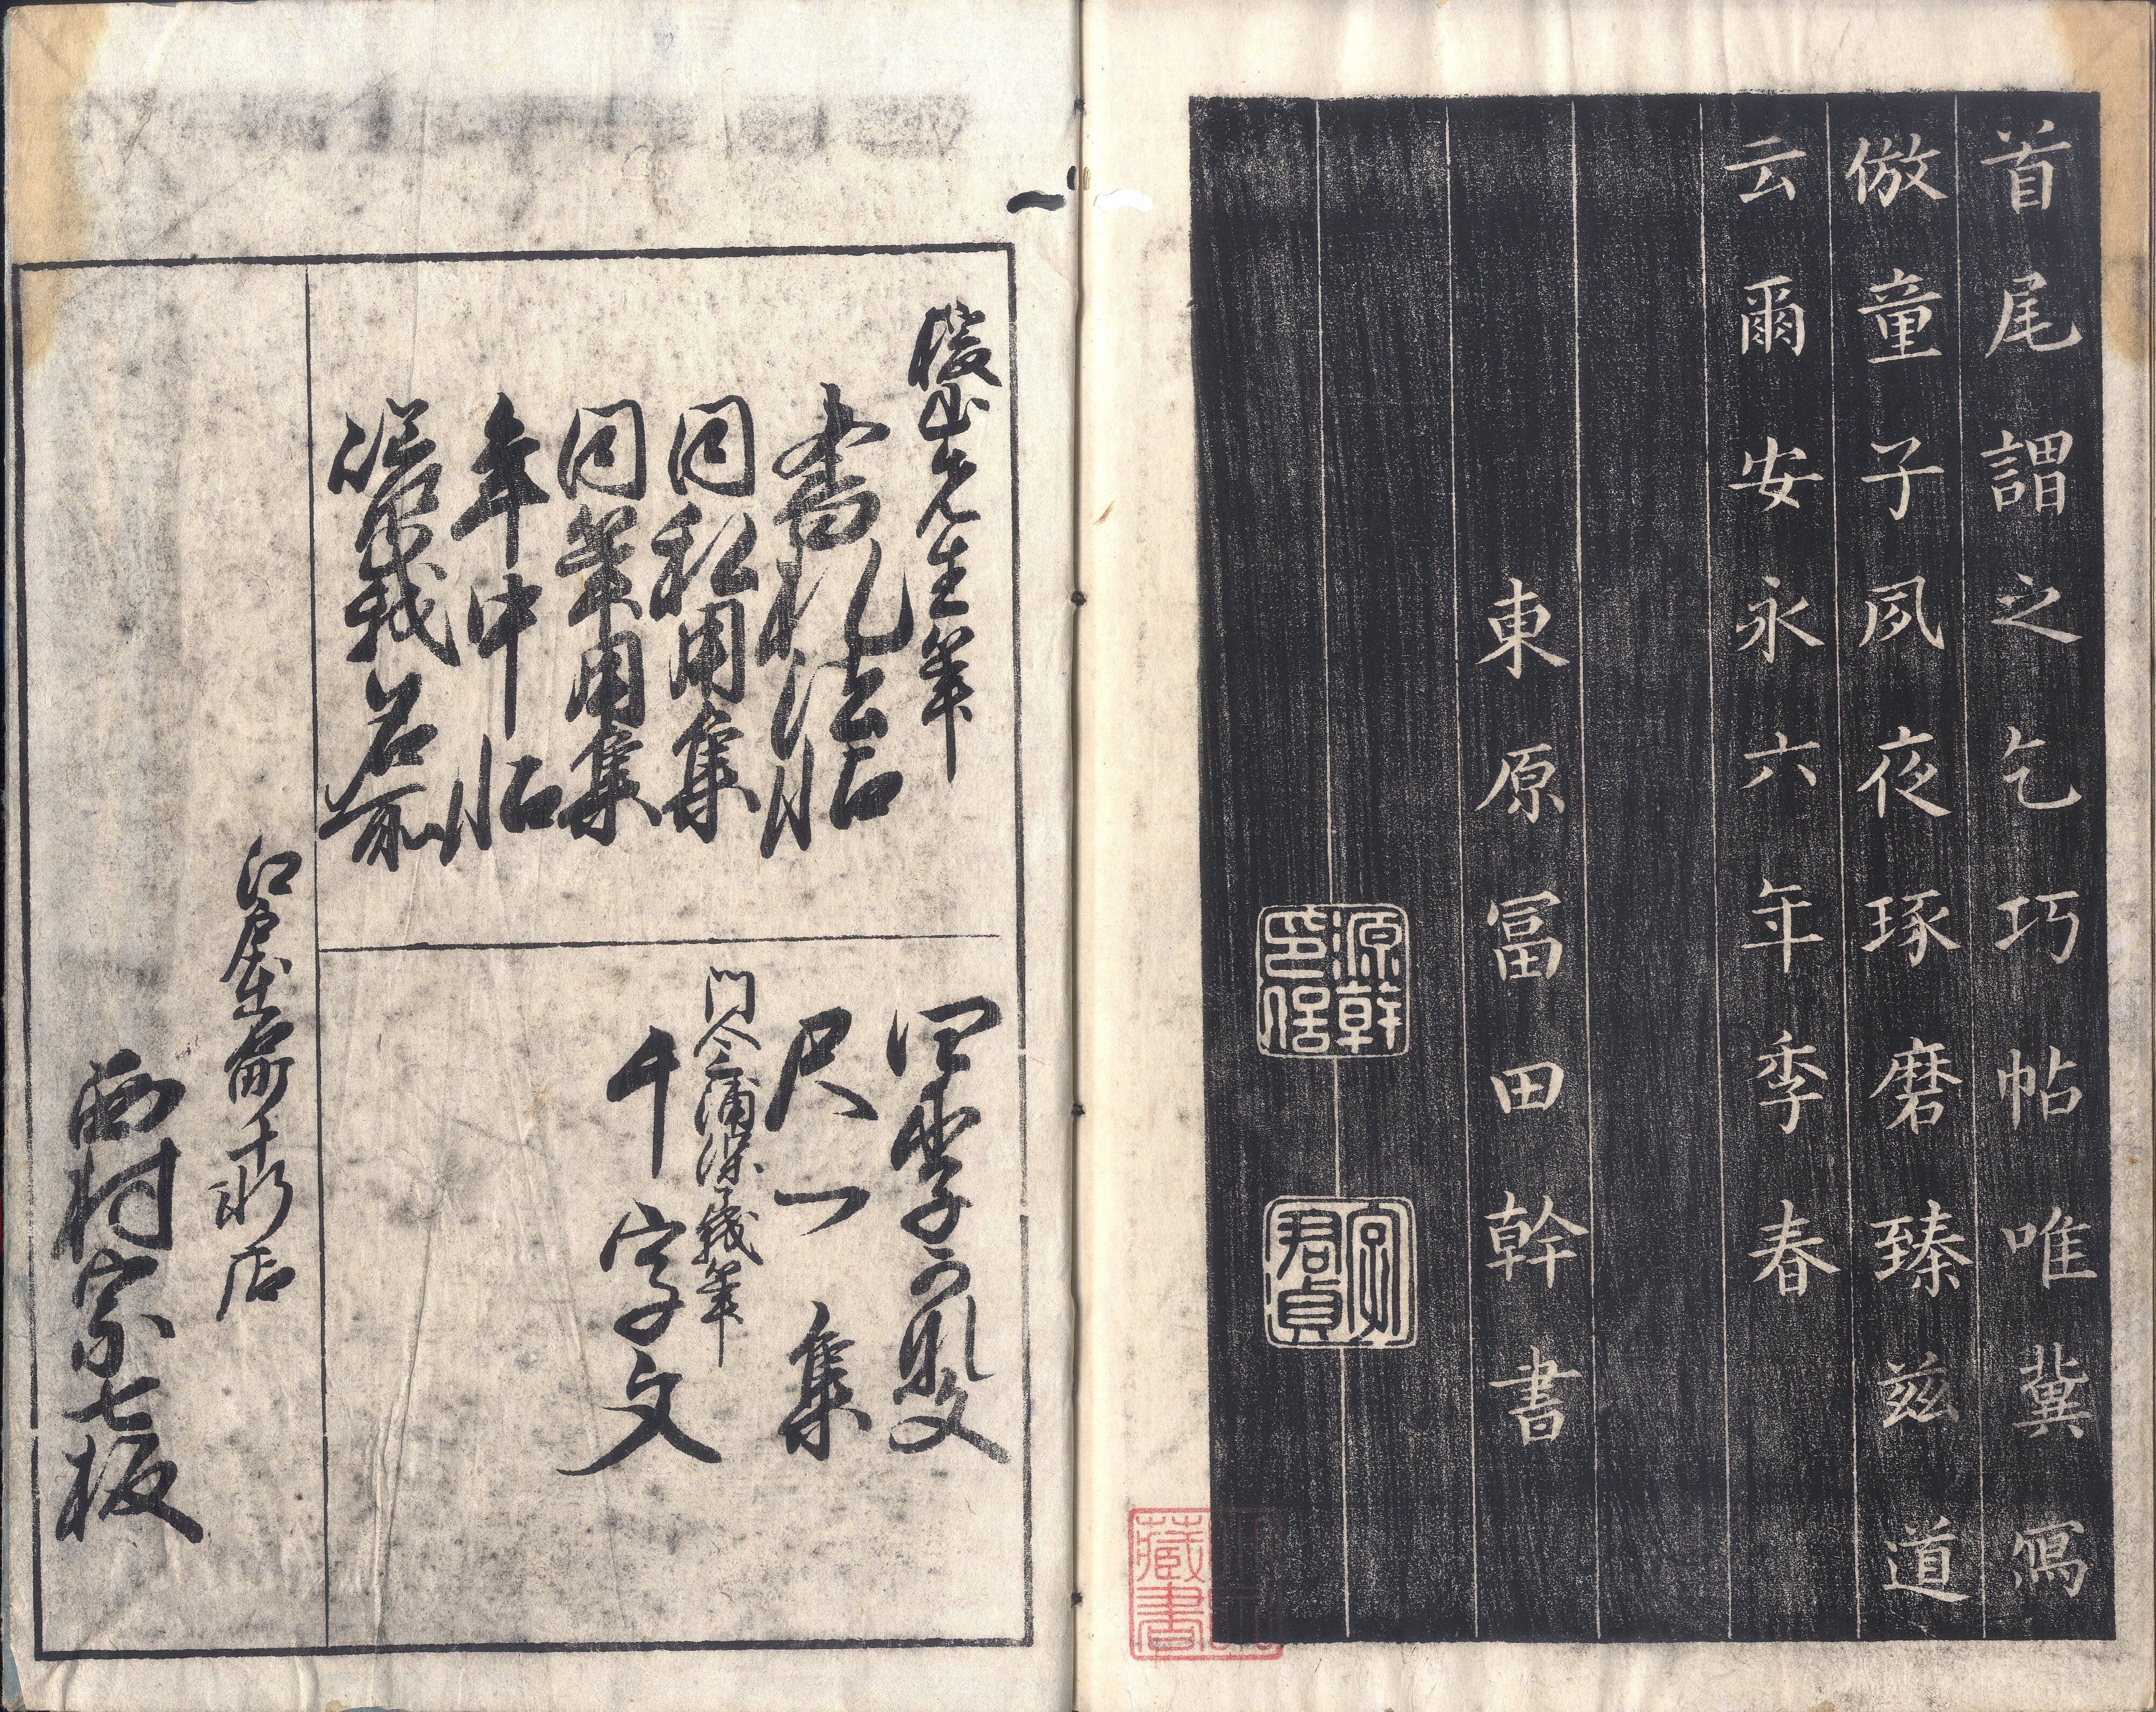 首尾謂之乞巧帖唯冀寫
倣童子夙夜琢磨臻茲道
云爾安永六年季春
東原冨田幹書
源幹
印信
字
君貞
藏書
先生筆
書札法帖
同私用集
同筆用集
年中帖
名前
尺一集
門人三浦
筆
千字文
江戸本
町
店
西村宗七板